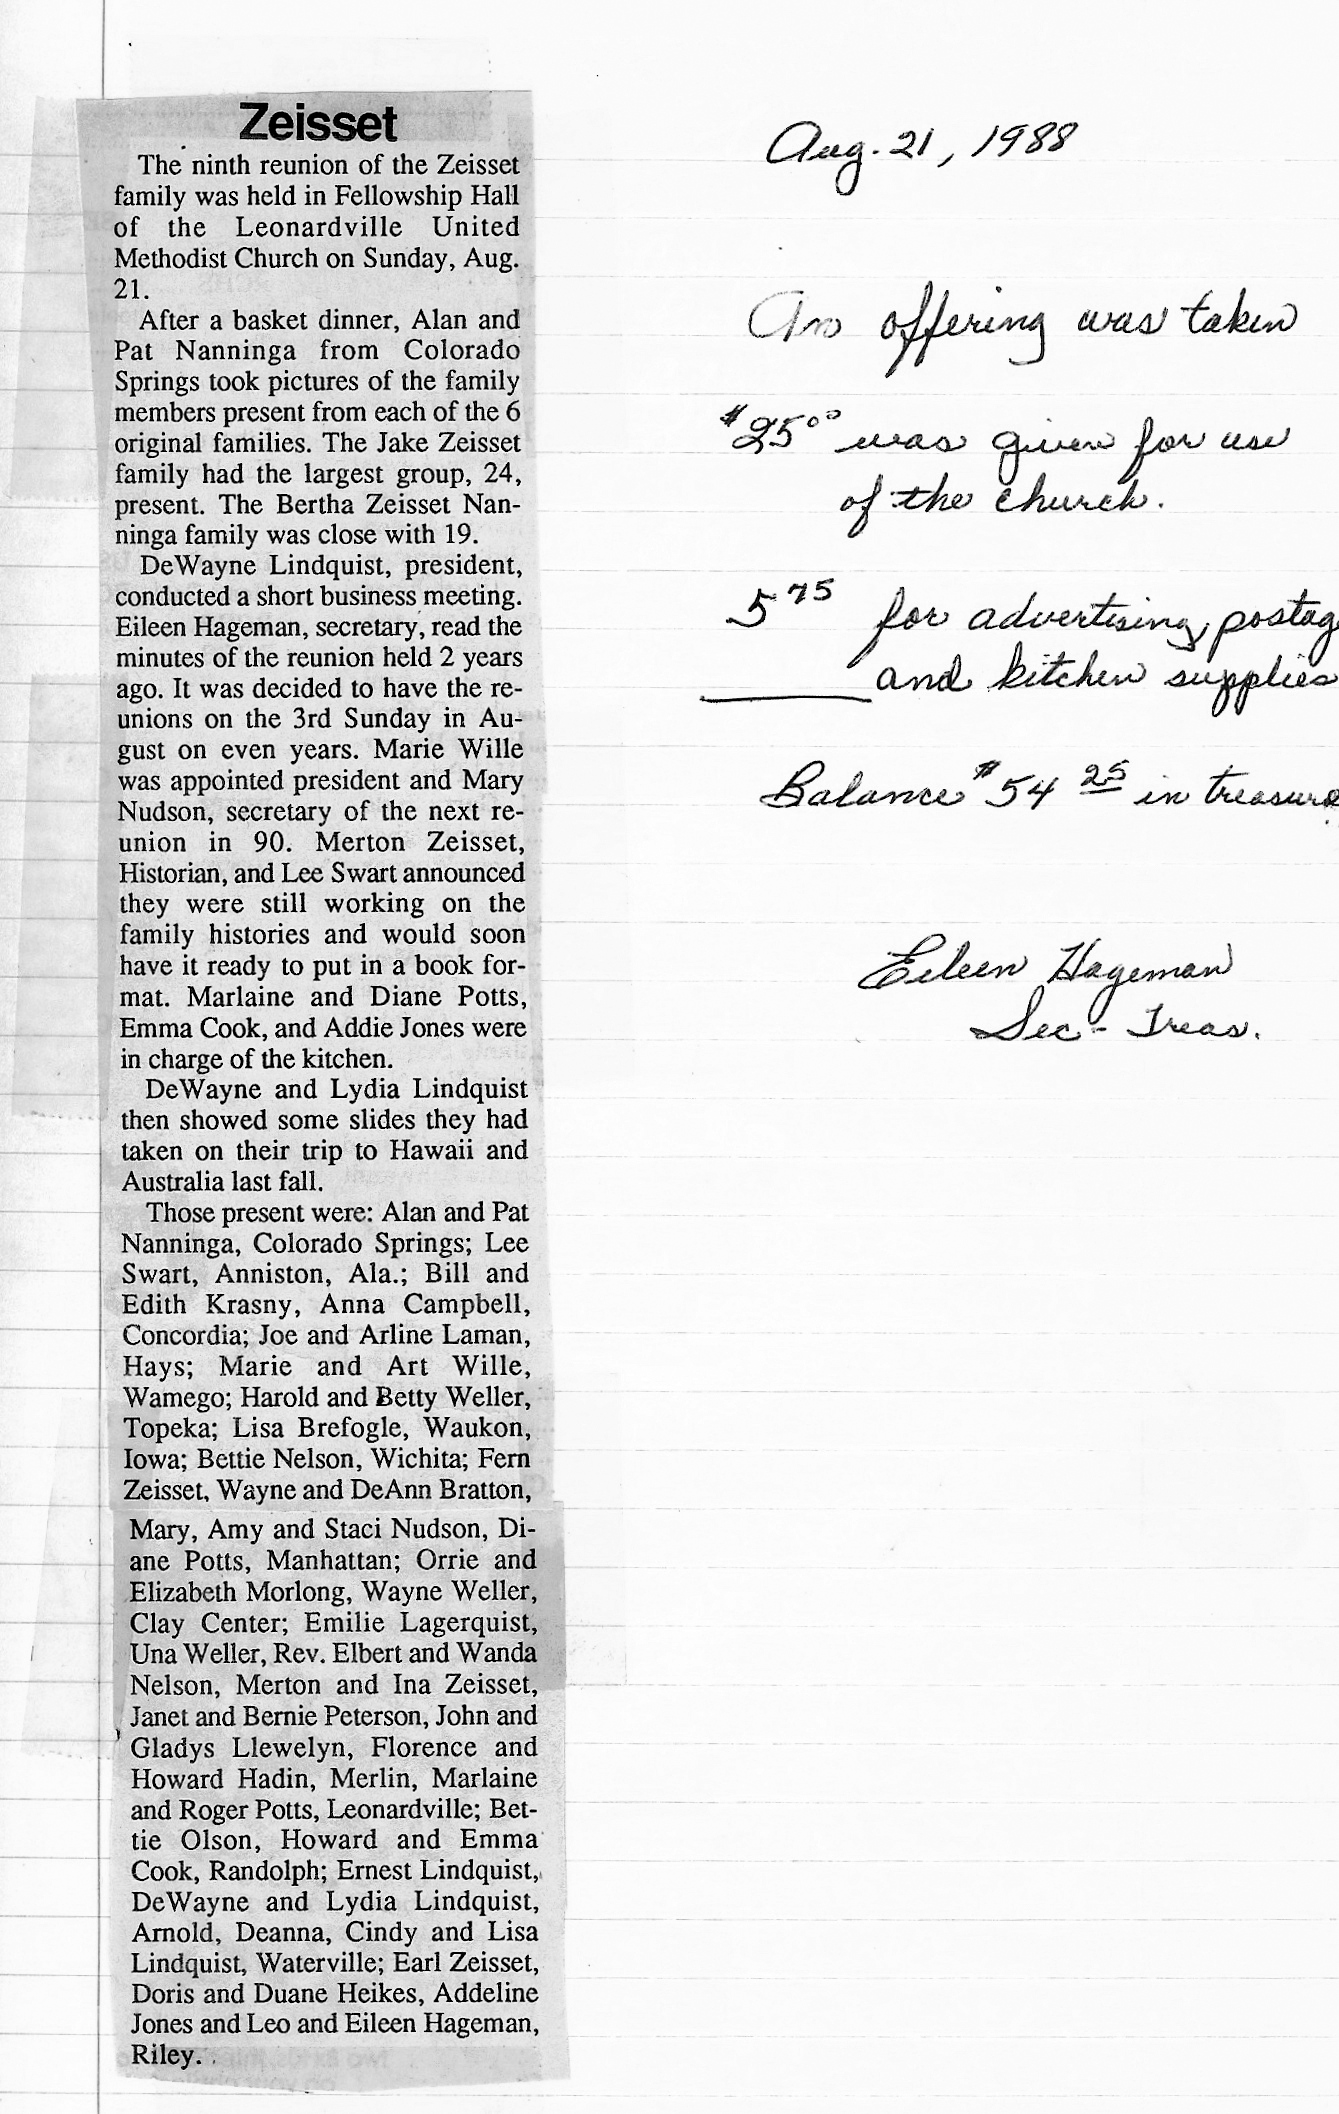 Zeisset
The ninth reunion of the Zeisset
family was held in Fellowship Hall
of the Leonardville United
Methodist Church on Sunday, Aug.
21.
After a basket dinner, Alan and
Pat Nanninga from Colorado
Springs took pictures of the family
members present from each of the 6
original families. The Jake Zeisset
family had the largest group, 24,
present. The Bertha Zeisset Nan-
ninga family was close with 19.
DeWayne Lindquist, president,
conducted a short business meeting.
Eileen Hageman, secretary, read the
minutes of the reunion held 2 years
ago. It was decided to have the re-
unions on the 3rd Sunday in Au-
gust on even years. Marie Wille
was appointed president and Mary
Nudson, secretary of the next re-
union in 90. Merton Zeisset,
Historian, and Lee Swart announced
they were still working on the
family histories and would soon
have it ready to put in a book for-
mat. Marlaine and Diane Potts,
Emma Cook, and Addie Jones were
in charge of the kitchen.
DeWayne and Lydia Lindquist
then showed some slides they had
taken on their trip to Hawaii and
Australia last fall.
Those present were: Alan and Pat
Nanninga, Colorado Springs; Lee
Swart, Anniston, Ala.; Bill and
Edith Krasny, Anna Campbell,
Concordia; Joe and Arline Laman,
Hays; Marie and Art Wille,
Wamego; Harold and Betty Weller,
Topeka; Lisa Brefogle, Waukon,
Iowa; Bettie Nelson, Wichita; Fern
Zeisset, Wayne and DeAnn Bratton,
Mary, Amy and Staci Nudson, Di-
ane Potts, Manhattan; Orrie and
Elizabeth Morlong, Wayne Weller,
Clay Center; Emilie Lagerquist,
Una Weller, Rev. Elbert and Wanda
Nelson, Merton and Ina Zeisset,
Janet and Bernie Peterson, John and
Gladys Llewelyn, Florence and
Howard Hadin, Merlin, Marlaine
and Roger Potts, Leonardville; Bet-
tie Olson, Howard and Emma
Cook, Randolph; Ernest Lindquist,
DeWayne and Lydia Lindquist,
Arnold, Deanna, Cindy and Lisa
Lindquist, Waterville; Earl Zeisset,
Doris and Duane Heikes, Addeline
Jones and Leo and Eileen Hageman,
Riley.
Aug. 21, 1988
An offering was taken
$25.00 was given for use
of the church.
5 75 for advertising, postag
and kitchen supplies
Balance $54 25 in treasure
Eileen Hageman
Sec - Treas.